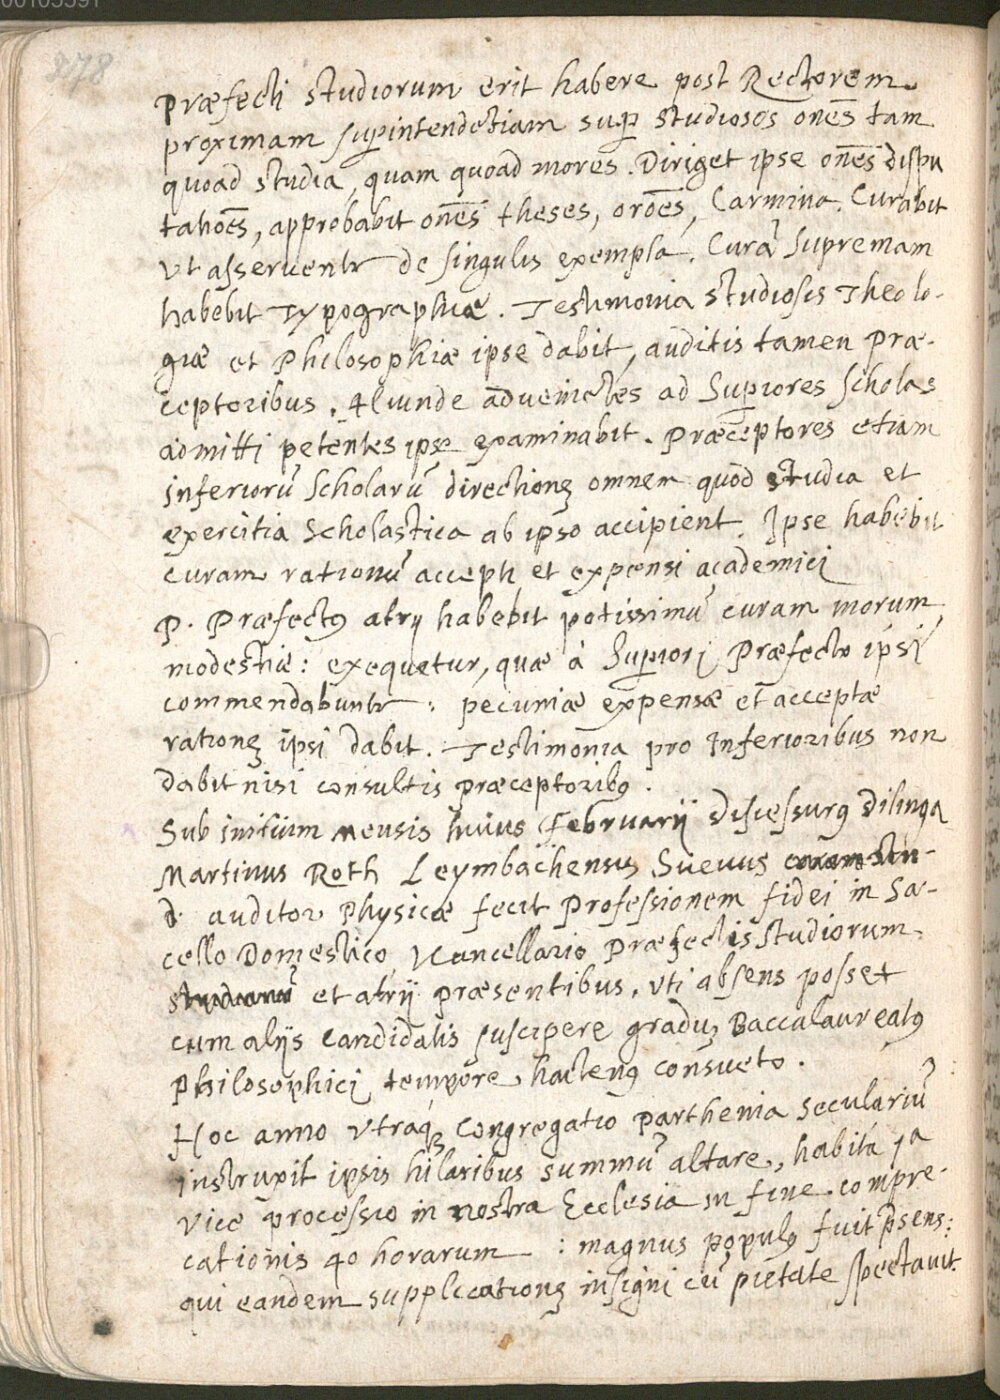 00105591
878
Præfecti studiorum erit habere post Rectorem
proximam supintendētiam sup studiosos oñes tam
quoad studia, quam quoad mores. Diriget ipse oñes dispu
tatioēs, approbabit oñes theses, oroēs, Carmina. Curabit
vt asserventr de singulis exempla. Curā supremam
habebit Typographiæ. Testimonia studiosis Theolo-
giæ et Philosophiæ ipse dabit, auditis tamen Præ-
ceptoribus. Aliunde advenietēs ad Supiores scholas
admitti petentes ipse examinabit. Præceptores etiam
inferiorū scholarū directionę omnem quòd studia et
exercitia scholastica ab ipso accipient. Ipse habebit
curam rationū accepti et expensi academici
P. Præfectꝰ atrij habebit potissimū curam morum,
modestiæ: exequetur, quæ à Supiori Præfecto ipsi
commendabuntr: pecuniæ expensæ et acceptæ
rationę ipsi dabit. Testimonia pro Inferioribus non
dabit nisi consultis præceptoribꝰ.
Sub initium mensis huius Februarij discessurꝰ dilinga
Martinus Roth Leymbachensis Suevus
d. auditor Physicæ fecit Professionem fidei in Sa-
cello Domestico Vcancellario Præfectis studiorum
et atrij præsentibus, vti absens posset
cum alijs candidatis suscipere gradū Baccalaureatꝰ
Philosophici tempore hactenꝰ consueto.
Hoc anno vtraqꝫ Congregatio Parthenia seculariū
instruxit ipsis hilaribus summū altare, habita 1ª
vice processio in nostra Ecclesia in fine compre-
cationis 40 horarum: magnus populꝰ fuit p̄sens:
qui eandem supplicationę insigni cū pietate spectavit.